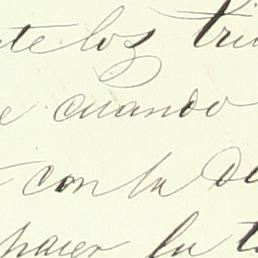 te los tri
e cuando
con la de
hacer su t